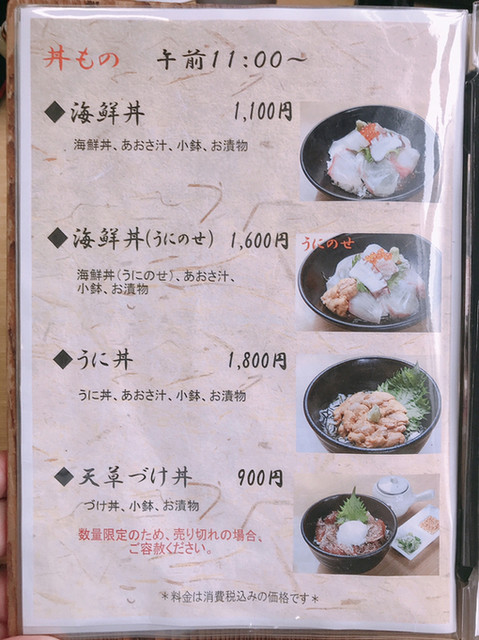 丼もの 午前11:00～
◆海鮮丼 1,100円
海鮮丼、あおさ汁、小鉢、お漬物
◆海鮮丼(うにのせ) 1,600円
うにのせ
海鮮丼(うにのせ)、あおさ汁、
小鉢、お漬物
◆うに丼 1,800円
うに丼、あおさ汁、小鉢、お漬物
◆天草づけ丼 900円
づけ丼、小鉢、お漬物
数量限定のため、売り切れの場合、
ご容赦ください。
＊料金は消費税込みの価格です＊